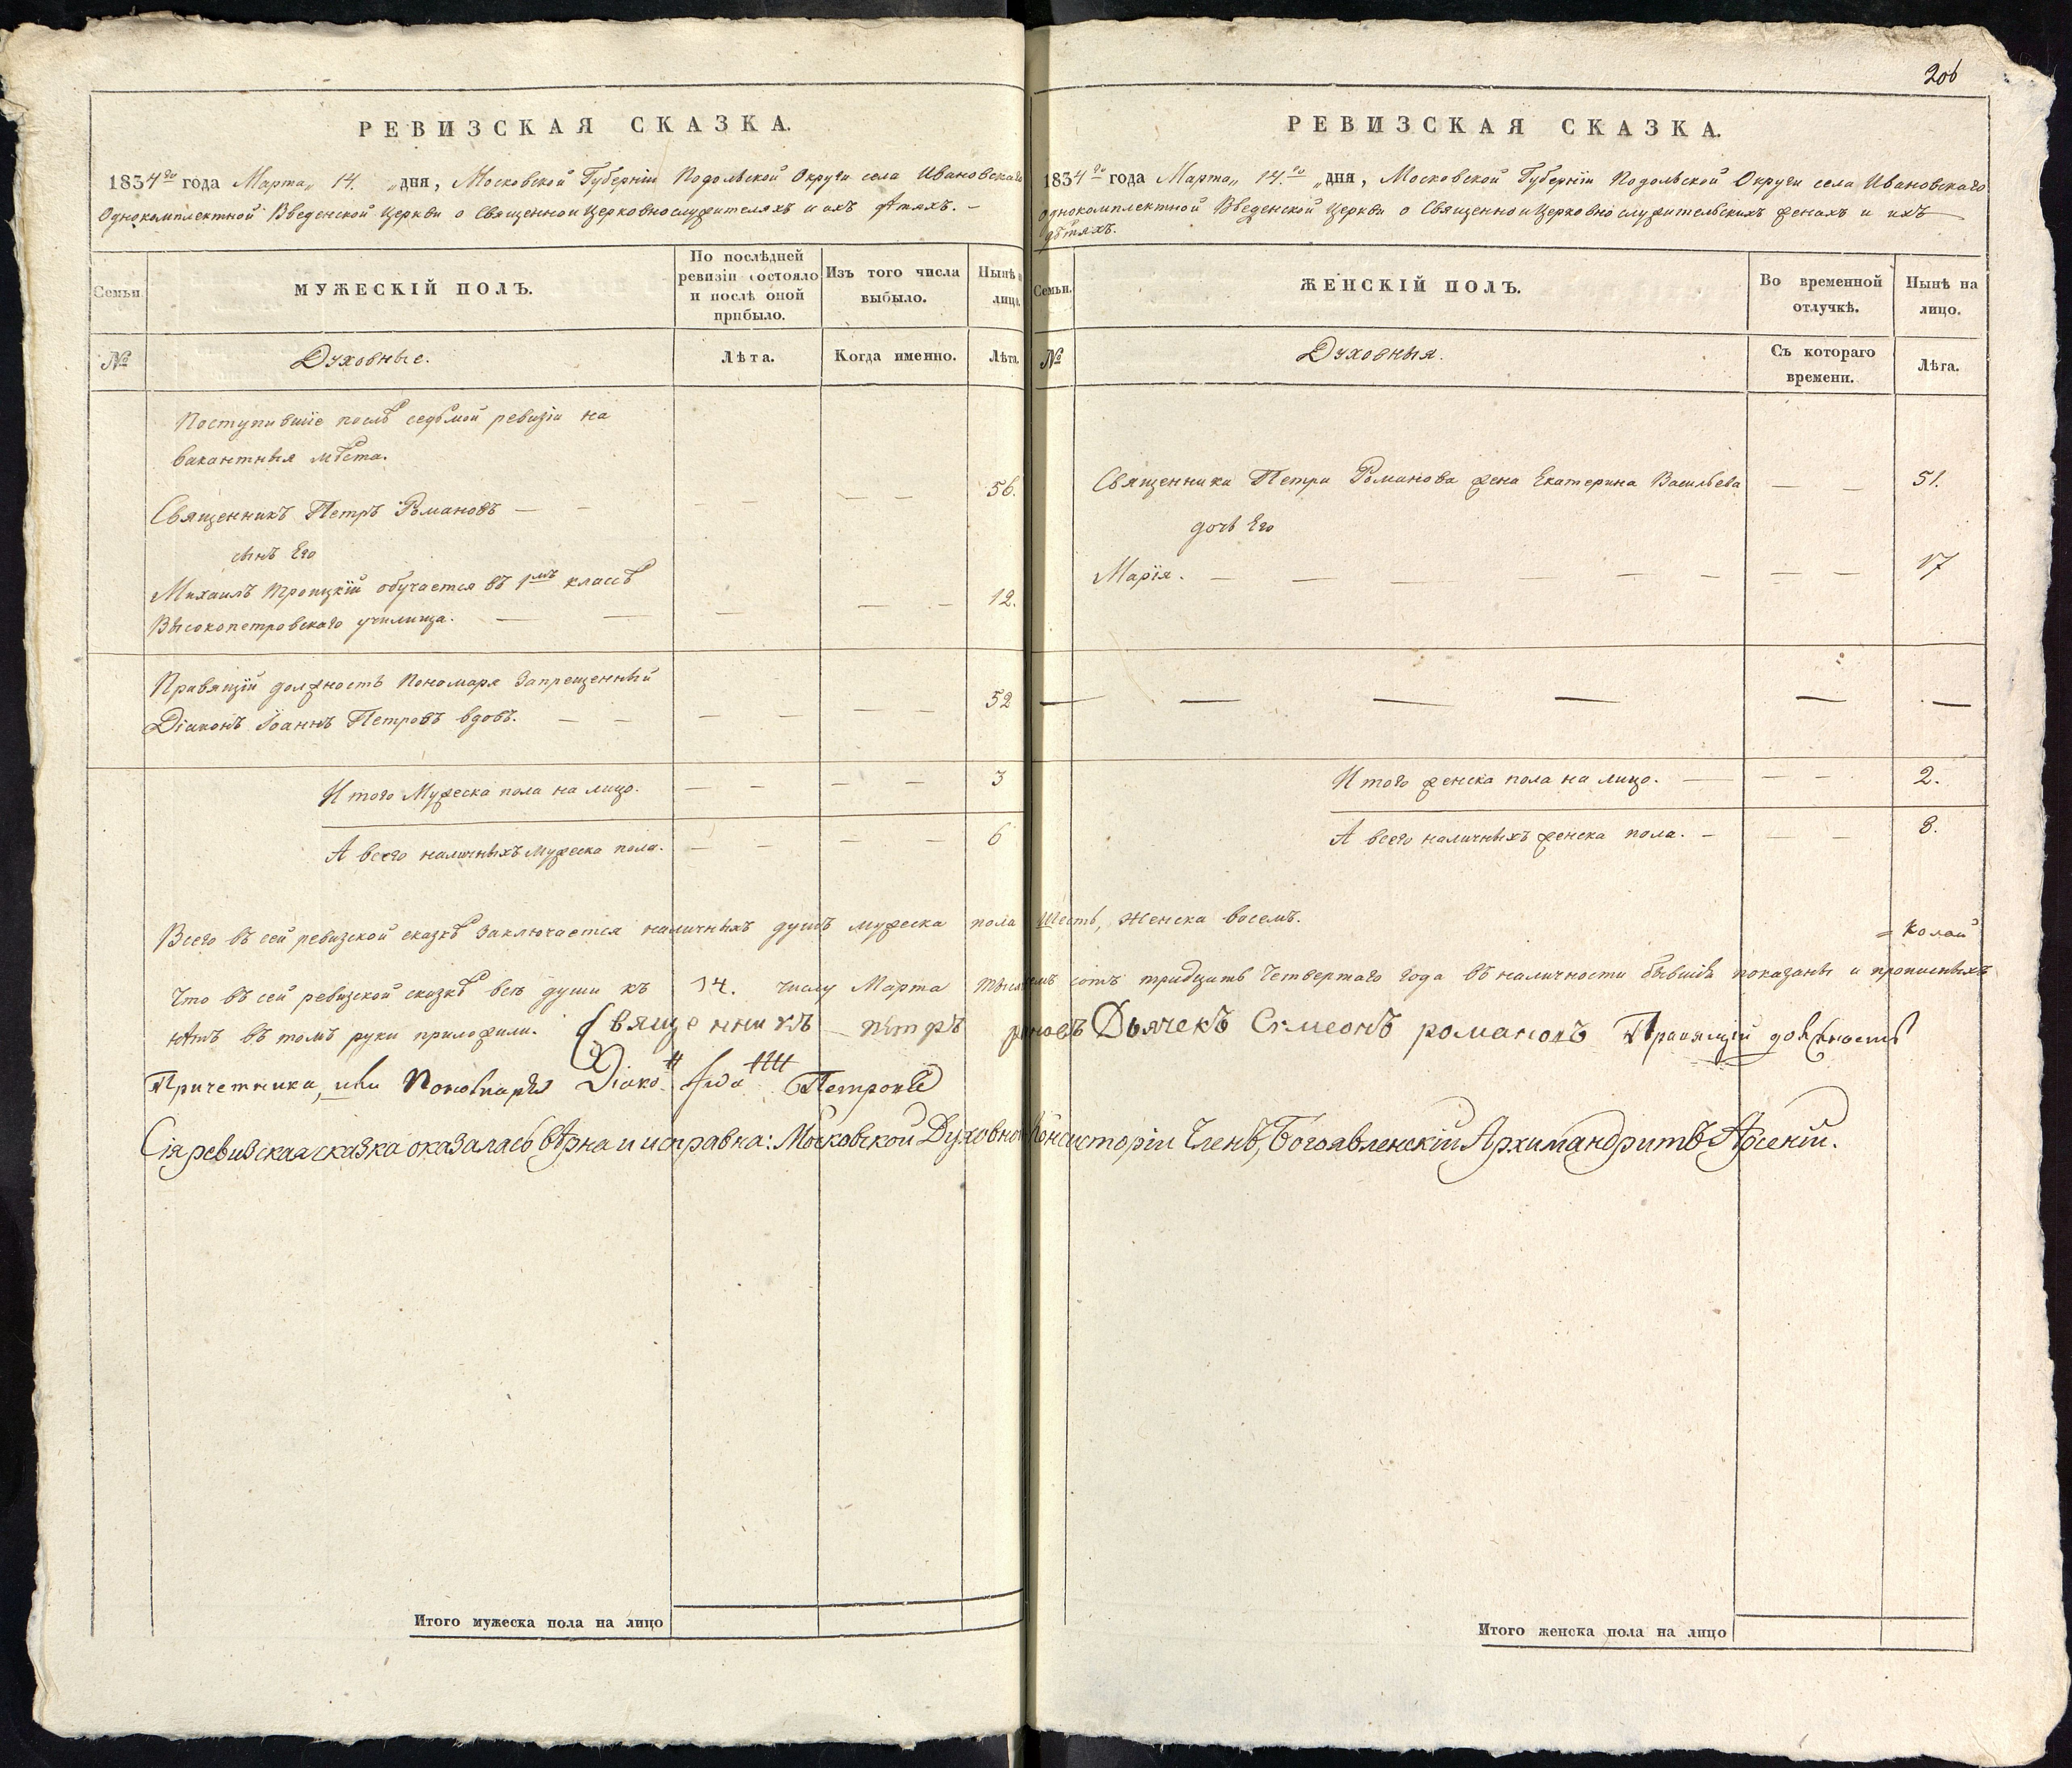 РЕВИЗСКАЯ СКАЗКА.
1834го года Марта„ 14. „дня, Московской Губерніи Подольской Округи села Ивановскаго
Однокомплектной Введенской Церкви о Священно и Церковнослужителяхъ и ихъ дѣтяхъ. –
Семьи.
МУЖЕСКІЙ ПОЛЪ.
По послѣдней ревизіи состояло и послѣ оной прибыло.
Изъ того числа выбыло.
Нынѣ на лицо.
№
Духовные.
Лѣта.
Когда именно.
Лѣта.
Поступившіе послѣ седьмой ревизіи на
вакантныя мѣста.
Священникъ Петръ Романовъ — — 56.
сынъ Его
Михаилъ Троицкій обучается въ 1мъ классѣ
Высокопетровскаго училища. — — 12.
Правящій должность Пономаря Запрещенный
Діаконъ Іоаннъ Петровъ вдовъ. — — 52
Итого Мужеска пола на лицо. — — 3
А всего наличныхъ Мужеска пола. — — 6
206
РЕВИЗСКАЯ СКАЗКА.
1834го года Марта„ 14.го „дня, Московской Губерніи Подольской Округи села Ивановскаго
Однокомплектной Введенской Церкви о Священно и Церковно служительскихъ женахъ и ихъ
дѣтяхъ.
Семьи.
ЖЕНСКІЙ ПОЛЪ.
Во временной отлучкѣ.
Нынѣ на лицо.
№
Духовныя.
Съ котораго времени.
Лѣта.
Священника Петра Романова жена Екатерина Васильева — — 51.
дочь Его
Марія. — — 17
Итого женска пола на лицо. — — 2.
А всего наличныхъ женска пола. — — 8.
Всего въ сей ревизской сказкѣ Заключается наличныхъ душъ мужеска пола Шесть, Женска восемь.
Что въ сей ревизской сказкѣ всѣ души къ 14. числу Марта сотъ тридцать Четвертаго года въ наличности бывшія показаны и прописныхъ
нѣтъ въ томъ руки приложили. Священникъ Петръ Дьячекъ Симеонъ романовъ Правящій должность
Причетника, или Пономаря Діако Петровъ
Сія ревизская сказка оказалась вѣрна и исправна: Московской Духовной Консисторіи Членъ, Богоявленскій Архимандритъ Арсеній.
Итого мужеска пола на лицо
Итого женска пола на лицо